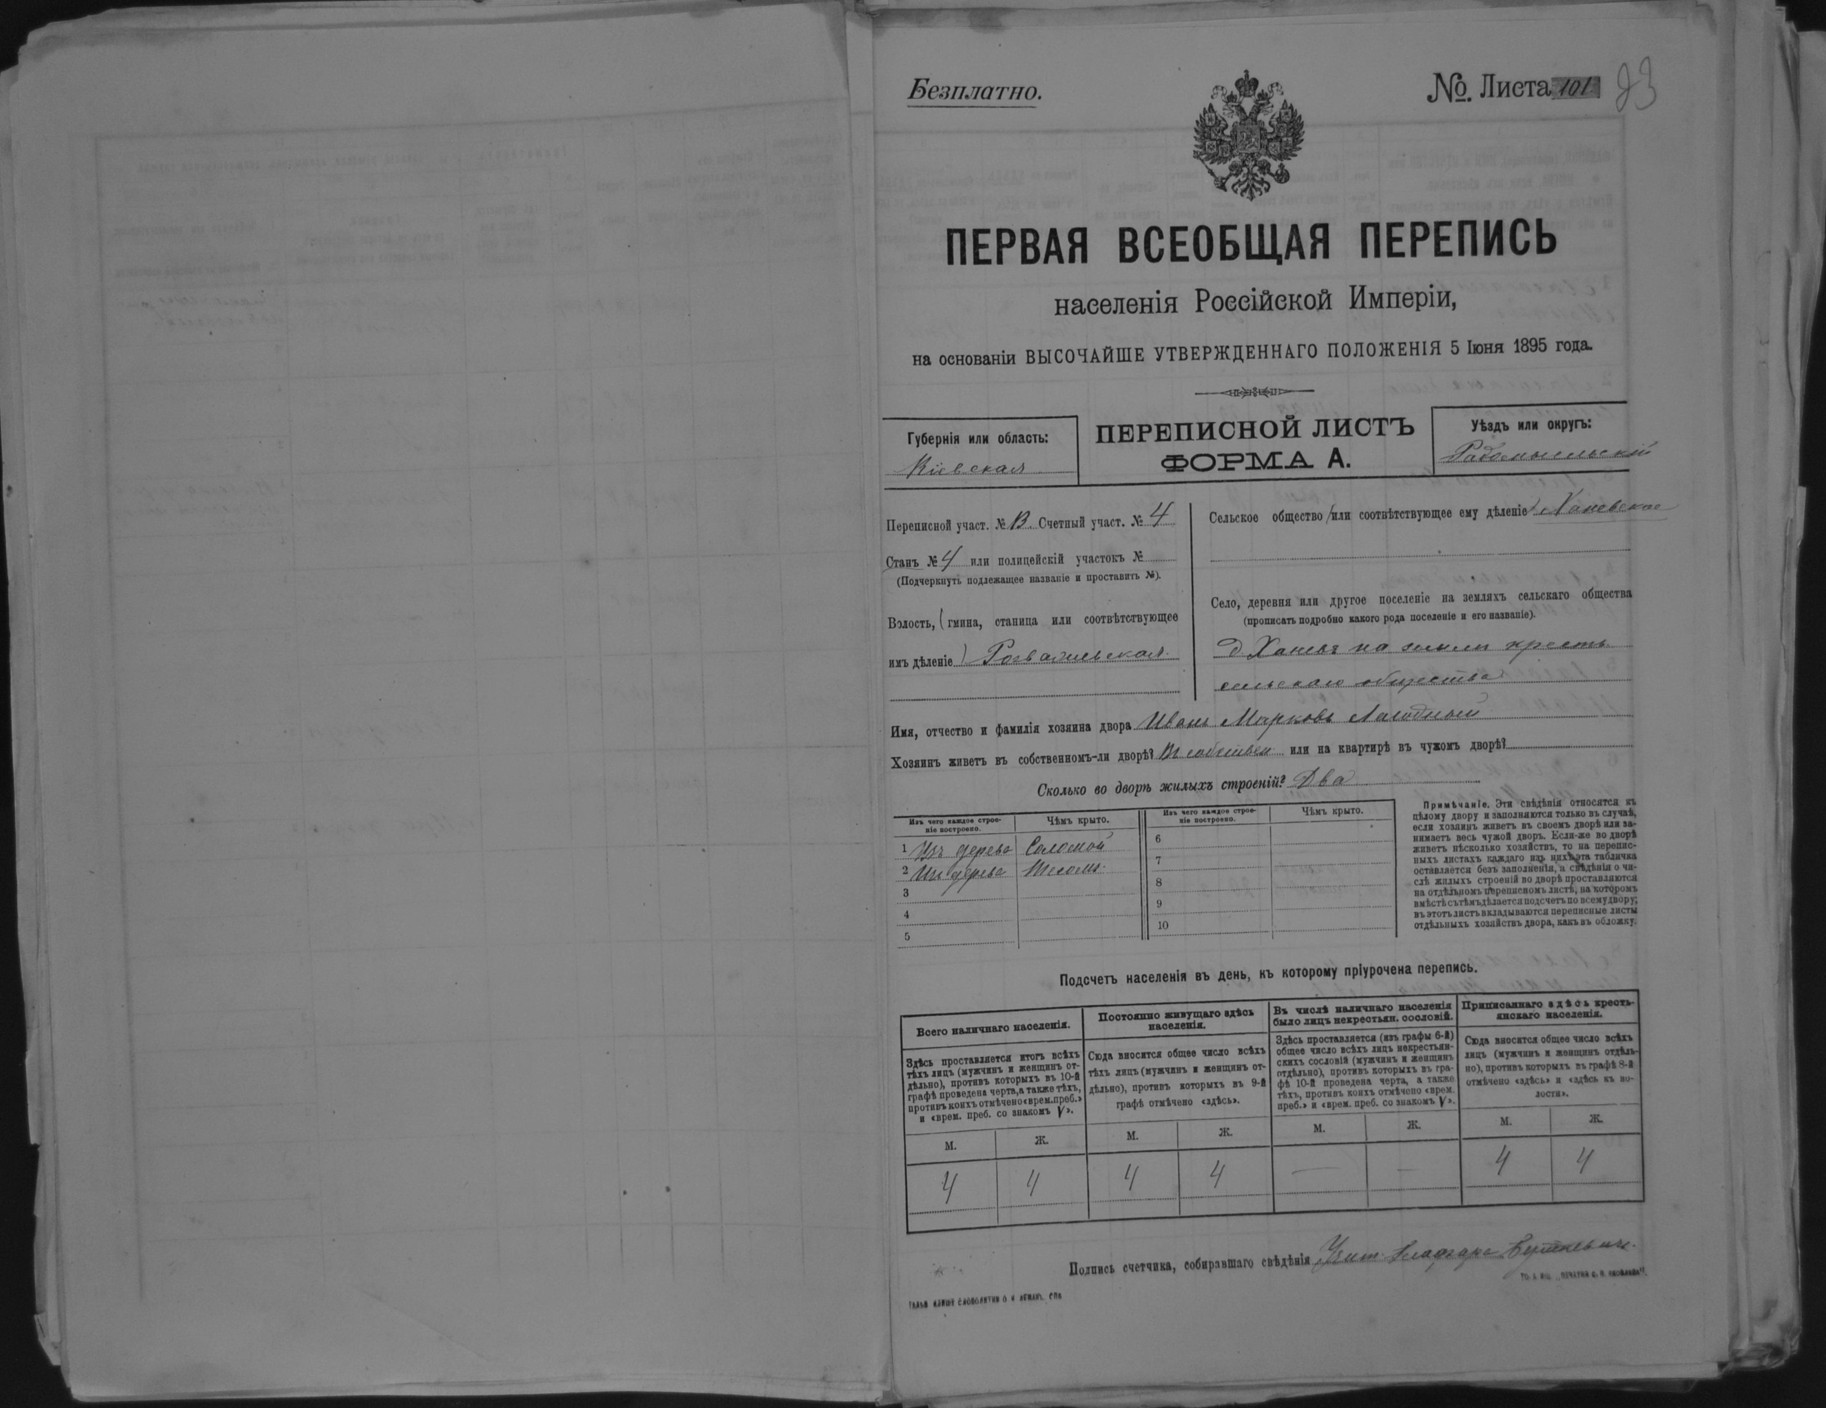 Безплатно.
№. Листа 101 93
ПЕРВАЯ ВСЕОБЩАЯ ПЕРЕПИСЬ
населенія Россійской Имперіи,
на основаніи ВЫСОЧАЙШЕ УТВЕРЖДЕННАГО ПОЛОЖЕНІЯ 5 Іюня 1895 года.
Губернія или область:
Кіевская
ПЕРЕПИСНОЙ ЛИСТЪ
ФОРМА А.
Уѣздъ или округъ:
Радомысльскій
Переписной участ. № В. Счетный участ. № 4
Станъ № 4 или полицейскій участокъ №
(Подчеркнуть подлежащее названіе и проставить №).
Волость, (гмина, станица или соотвѣтствующее
имъ дѣленіе)
Сельское общество (или соотвѣтствующее ему дѣленіе) Ханевское
Село, деревня или другое поселеніе на земляхъ сельскаго общества
(прописать подробно какого рода поселеніе и его названіе).
д Ханевъ на земли кресть
сельскаго общества
Имя, отчество и фамилія хозяина двора Иванъ Марковъ
Хозяинъ живетъ въ собственномъ-ли дворѣ? или на квартирѣ въ чужомъ дворѣ?
Сколько во дворѣ жилыхъ строеній? Два
Изъ чего каждое строе-
ніе построено.
Чѣмъ крыто.
Изъ чего каждое строе-
ніе построено.
Чѣмъ крыто.
1 Изъ дерева Соломой 6
2 Изъ дерева 7
3 8
4 9
5 10
Примѣчаніе. Эти свѣдѣнія относятся къ
цѣлому двору и заполняются только въ случаѣ,
если хозяинъ живетъ въ своемъ дворѣ или за-
нимаетъ весь чужой дворъ. Если-же во дворѣ
живетъ нѣсколько хозяйствъ, то на перепис-
ныхъ листахъ каждаго изъ нихъ эта табличка
оставляется безъ заполненія, а свѣдѣнія о чи-
слѣ жилыхъ строеній во дворѣ проставляются
на отдѣльномъ переписномъ листѣ, на которомъ
вмѣстѣ съ тѣмъ дѣлается подсчетъ по всему двору;
въ этотъ листъ вкладываются переписные листы
отдѣльныхъ хозяйствъ двора, какъ въ обложку.
Подсчетъ населенія въ день, къ которому пріурочена перепись.
Всего наличнаго населенія.
Здѣсь проставляется итогъ всѣхъ
тѣхъ лицъ (мужчинъ и женщинъ от-
дѣльно), противъ которыхъ въ 10-й
графѣ проведена черта, а также тѣхъ,
противъ коихъ отмѣчено «врем. преб.»
и «врем. преб. со знакомъ V».
Постоянно живущаго здѣсь
населенія.
Сюда вносится общее число всѣхъ
тѣхъ лицъ (мужчинъ и женщинъ от-
дѣльно), противъ которыхъ въ 9-й
графѣ отмѣчено «здѣсь».
Въ числѣ наличнаго населенія
было лицъ некрестьян. сословій.
Здѣсь проставляется (изъ графы 6-й)
общее число всѣхъ лицъ некрестьян-
скихъ сословій (мужчинъ и женщинъ
отдѣльно), противъ которыхъ въ гра-
фѣ 10-й проведена черта, а также
тѣхъ, противъ коихъ отмѣчено «врем.
преб.» и «врем. преб. со знакомъ V».
Приписаннаго здѣсь кресть-
янскаго населенія.
Сюда вносится общее число всѣхъ
лицъ (мужчинъ и женщинъ отдѣль-
но), противъ которыхъ въ графѣ 8-й
отмѣчено «здѣсь» и «здѣсь къ во-
лости».
М. Ж. М. Ж. М. Ж. М. Ж.
4 4 4 4 — — 4 4
Подпись счетчика, собиравшаго свѣдѣнія